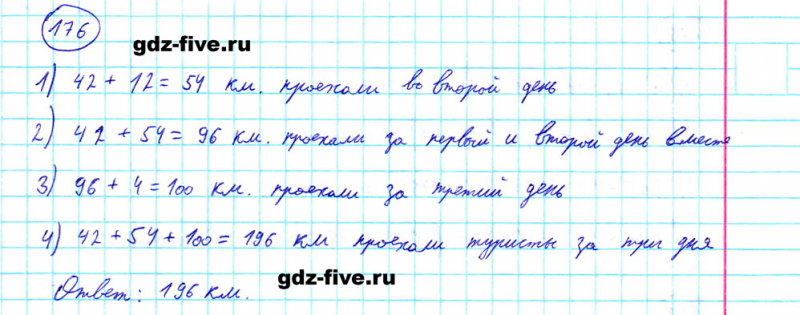 176
gdz-five.ru
1) 42 + 12 = 54 км. проехали во второй день
2) 42 + 54 = 96 км. проехали за первый и второй день вместе
3) 96 + 4 = 100 км. проехали за третий день
4) 42 + 54 + 100 = 196 км проехали туристы за три дня
gdz-five.ru
Ответ: 196 км.